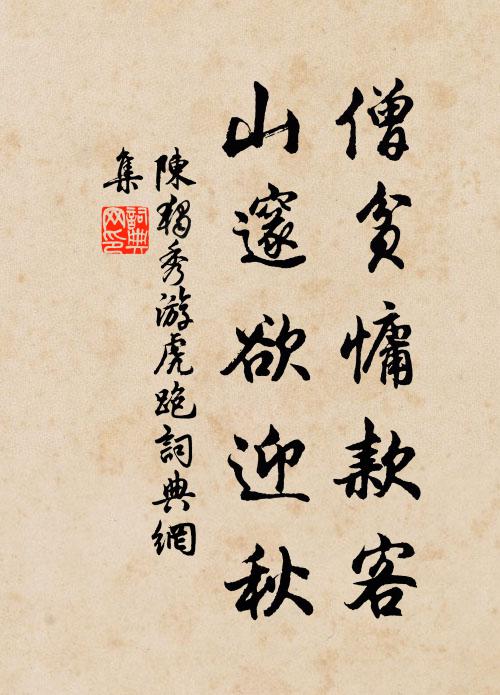 僧貧慵款客
山邃欲迎秋
陳獨秀游虎跑詞典網
集
詞典網印